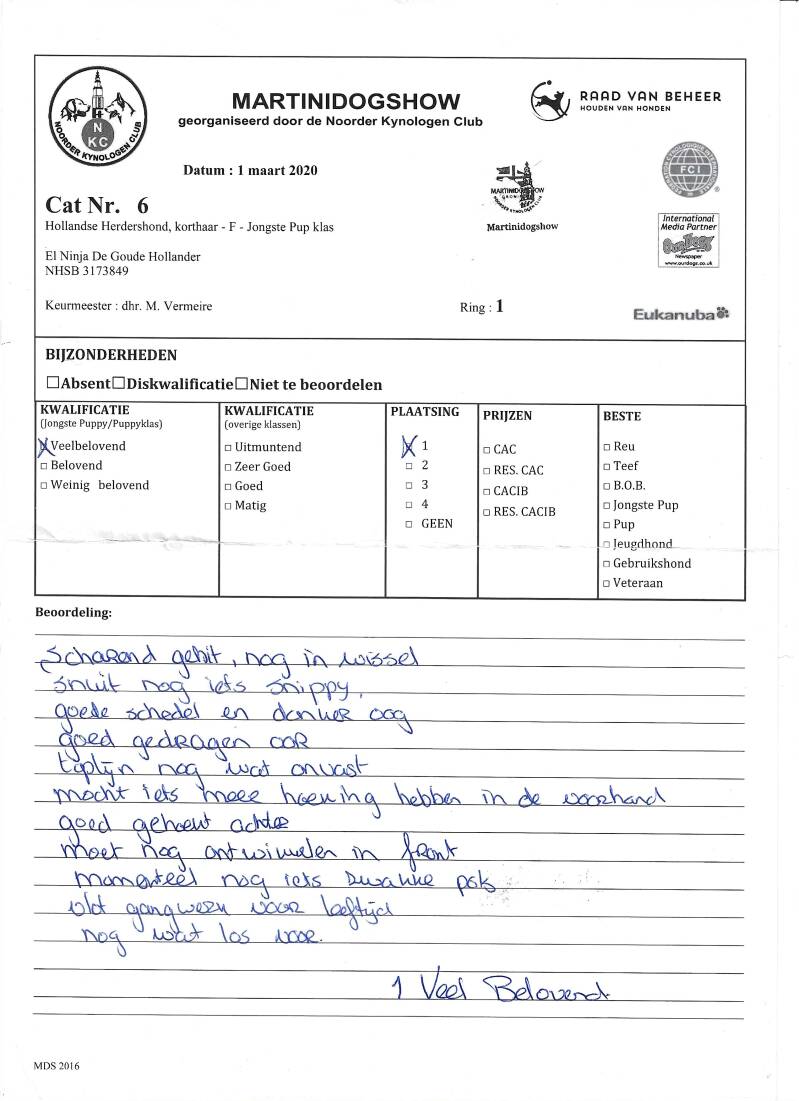 NOORDER KYNOLOGEN CLUB
N
KC
MARTINIDOGSHOW
georganiseerd door de Noorder Kynologen Club
RAAD VAN BEHEER
HOUDEN VAN HONDEN
Datum : 1 maart 2020
FCI
MARTINIDOGSHOW
Martinidogshow
Cat Nr. 6
Hollandse Herdershond, korthaar - F - Jongste Pup klas
International
Media Partner
OurDogs
Newspaper
www.ourdogs.co.uk
El Ninja De Goude Hollander
NHSB 3173849
Keurmeester : dhr. M. Vermeire
Ring : 1
Eukanuba
BIJZONDERHEDEN
☐Absent☐Diskwalificatie☐Niet te beoordelen
KWALIFICATIE
(Jongste Puppy/Puppyklas)
☒Veelbelovend
☐ Belovend
☐ Weinig belovend
KWALIFICATIE
(overige klassen)
☐ Uitmuntend
☐ Zeer Goed
☐ Goed
☐ Matig
PLAATSING
☒ 1
☐ 2
☐ 3
☐ 4
☐ GEEN
PRIJZEN
☐ CAC
☐ RES. CAC
☐ CACIB
☐ RES. CACIB
BESTE
☐ Reu
☐ Teef
☐ B.O.B.
☐ Jongste Pup
☐ Pup
☐ Jeugdhond
☐ Gebruikshond
☐ Veteraan
Beoordeling:
Scharend gebit, nog in wissel
snuit nog iets snippy,
goede schedel en donker oog
goed gedragen oor
toplijn nog wat onvast
mocht iets meer hoeking hebben in de voorhand
goed gehoekt achter
moet nog ontwikkelen in front
momenteel nog iets zwakke pols
vlot gangwerk voor leeftijd
nog wat los voor.
1 Veel Belovend
MDS 2016